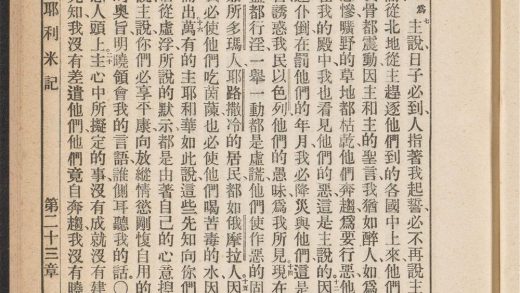 主說日子必到人指著我起誓必不再說主
從北地從主趕逐他們到的各國中上來他們
骨都震動因主和主的聖言我猶如醉人如爲
慘曠野的草地都枯乾他們奔趨爲要行惡他
仆倒在罰他們的年月我必降災與他們這是
在我的殿中我也看見他們的惡這是主說的因
誘惑我民以色列他們的愚昧爲我所見現在
都行淫一舉一動都是虛謊他們使作惡的固
那所多瑪人耶路撒冷的居民都如俄摩拉人因
必使他們吃茵蔯也必使他們喝苦毒的水因
而出萬有的主耶和華如此說這些先知向你們
從虛浮所說的默示都是由著自己的心意揑
主說你們必享平康向放縱情慾剛愎自用的
奧旨明曉領會我的言語誰側耳聽我的話○
惡人頭上主心中所擬定的事沒有成就沒有建
先知我沒有差遣他們他們竟自奔趨我沒有曉
耶利米記 第二十三章